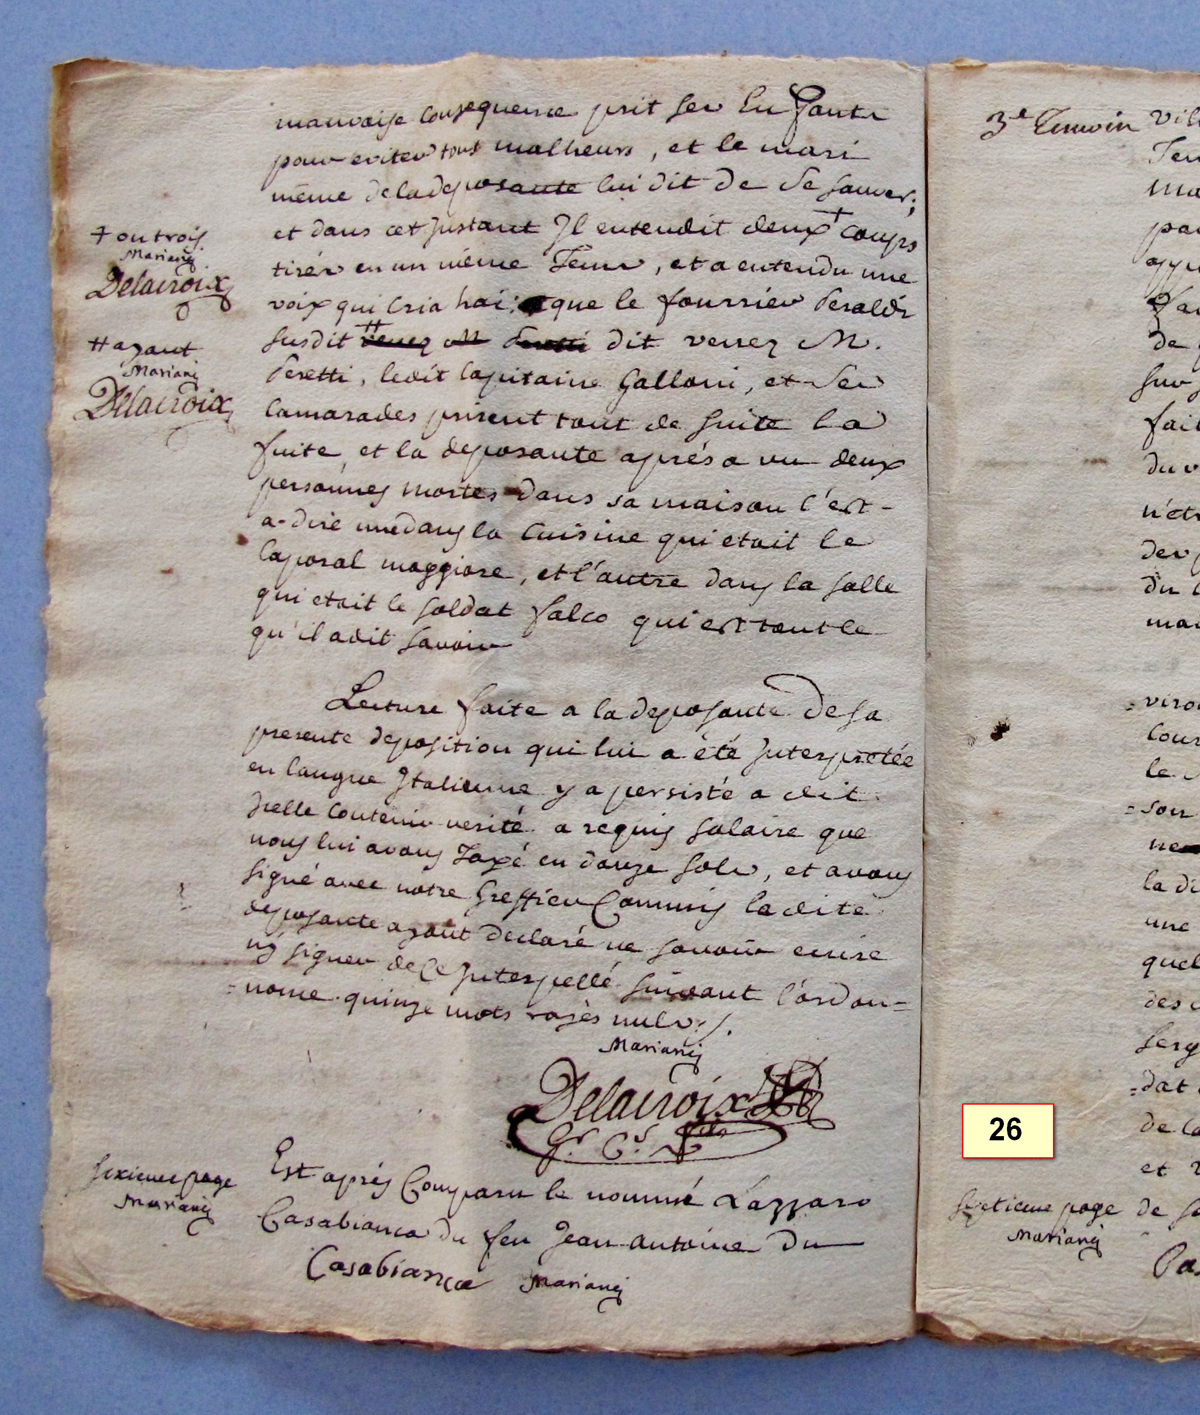 mauvaise consequence prit ser en fante
pour eviter tous malheurs, et le mari
même de la deposante lui dit de se sauver;
et dans cet Jnstant Jl entendit deux + coups
tirés en un même Tems, et a entendu une
voix qui cria hai: que le fourrier Peraldi
susdit ++ venez M. Peretti dit venez M.
Peretti, ledit Capitaine Galloni, et Ses
Camarades prirent tout de suite la
fuite, et la deposante aprés a vu deux
personnes mortes dans sa maison c'est-
a-dire une dans la cuisine qui etait le
Caporal maggiore, et l'autre dans la salle
qui etait le soldat falco qui est tout ce
qu'il a dit savoir
+ ou trois
Mariani
Delacroix
++ ayant
Mariani
Delacroix
Lecture faite a la deposante de sa
presente deposition qui lui a été Jnterpretée
en langue Jtalienne y a persisté a dit
d'icelle contenir verité a requis salaire que
nous lui avons Taxé en douze sols, et avons
signé avec notre Greffier Commis ladite
deposante ayant declaré ne savoir ecrire
ny signer de ce Jnterpellé suivant l'ordon=
=nance. quinze mots rayés nuls ./.
Mariani
Delacroix
Gr. Cs.
Est aprés Comparu le nommé Lazzaro
Casabianca du feu Jean antoine du
Casabianca Mariani
sixieme page
Mariani
3e Temoin vil
Ten
ma
pa
appe
de
sur
fait
du v
n'etr
des
du
mar
=viro
Cour
le
=son
ne
la di
une
quel
des
serg
=dat
de la
et
septieme page de
Mariani
Cas
26